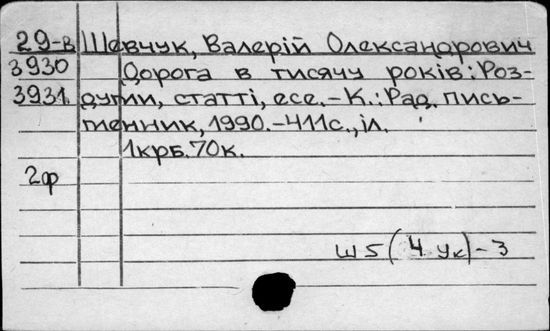 29-в Шевчук, Валерій Олександрович
3930 Дорога в тисячу років: Роз-
3931 думи, статті, есе.-К.: Рад. пись-
менник, 1990.-411с., іл.
1крб. 70к.
2ф
Ш5(4 Ук)-3